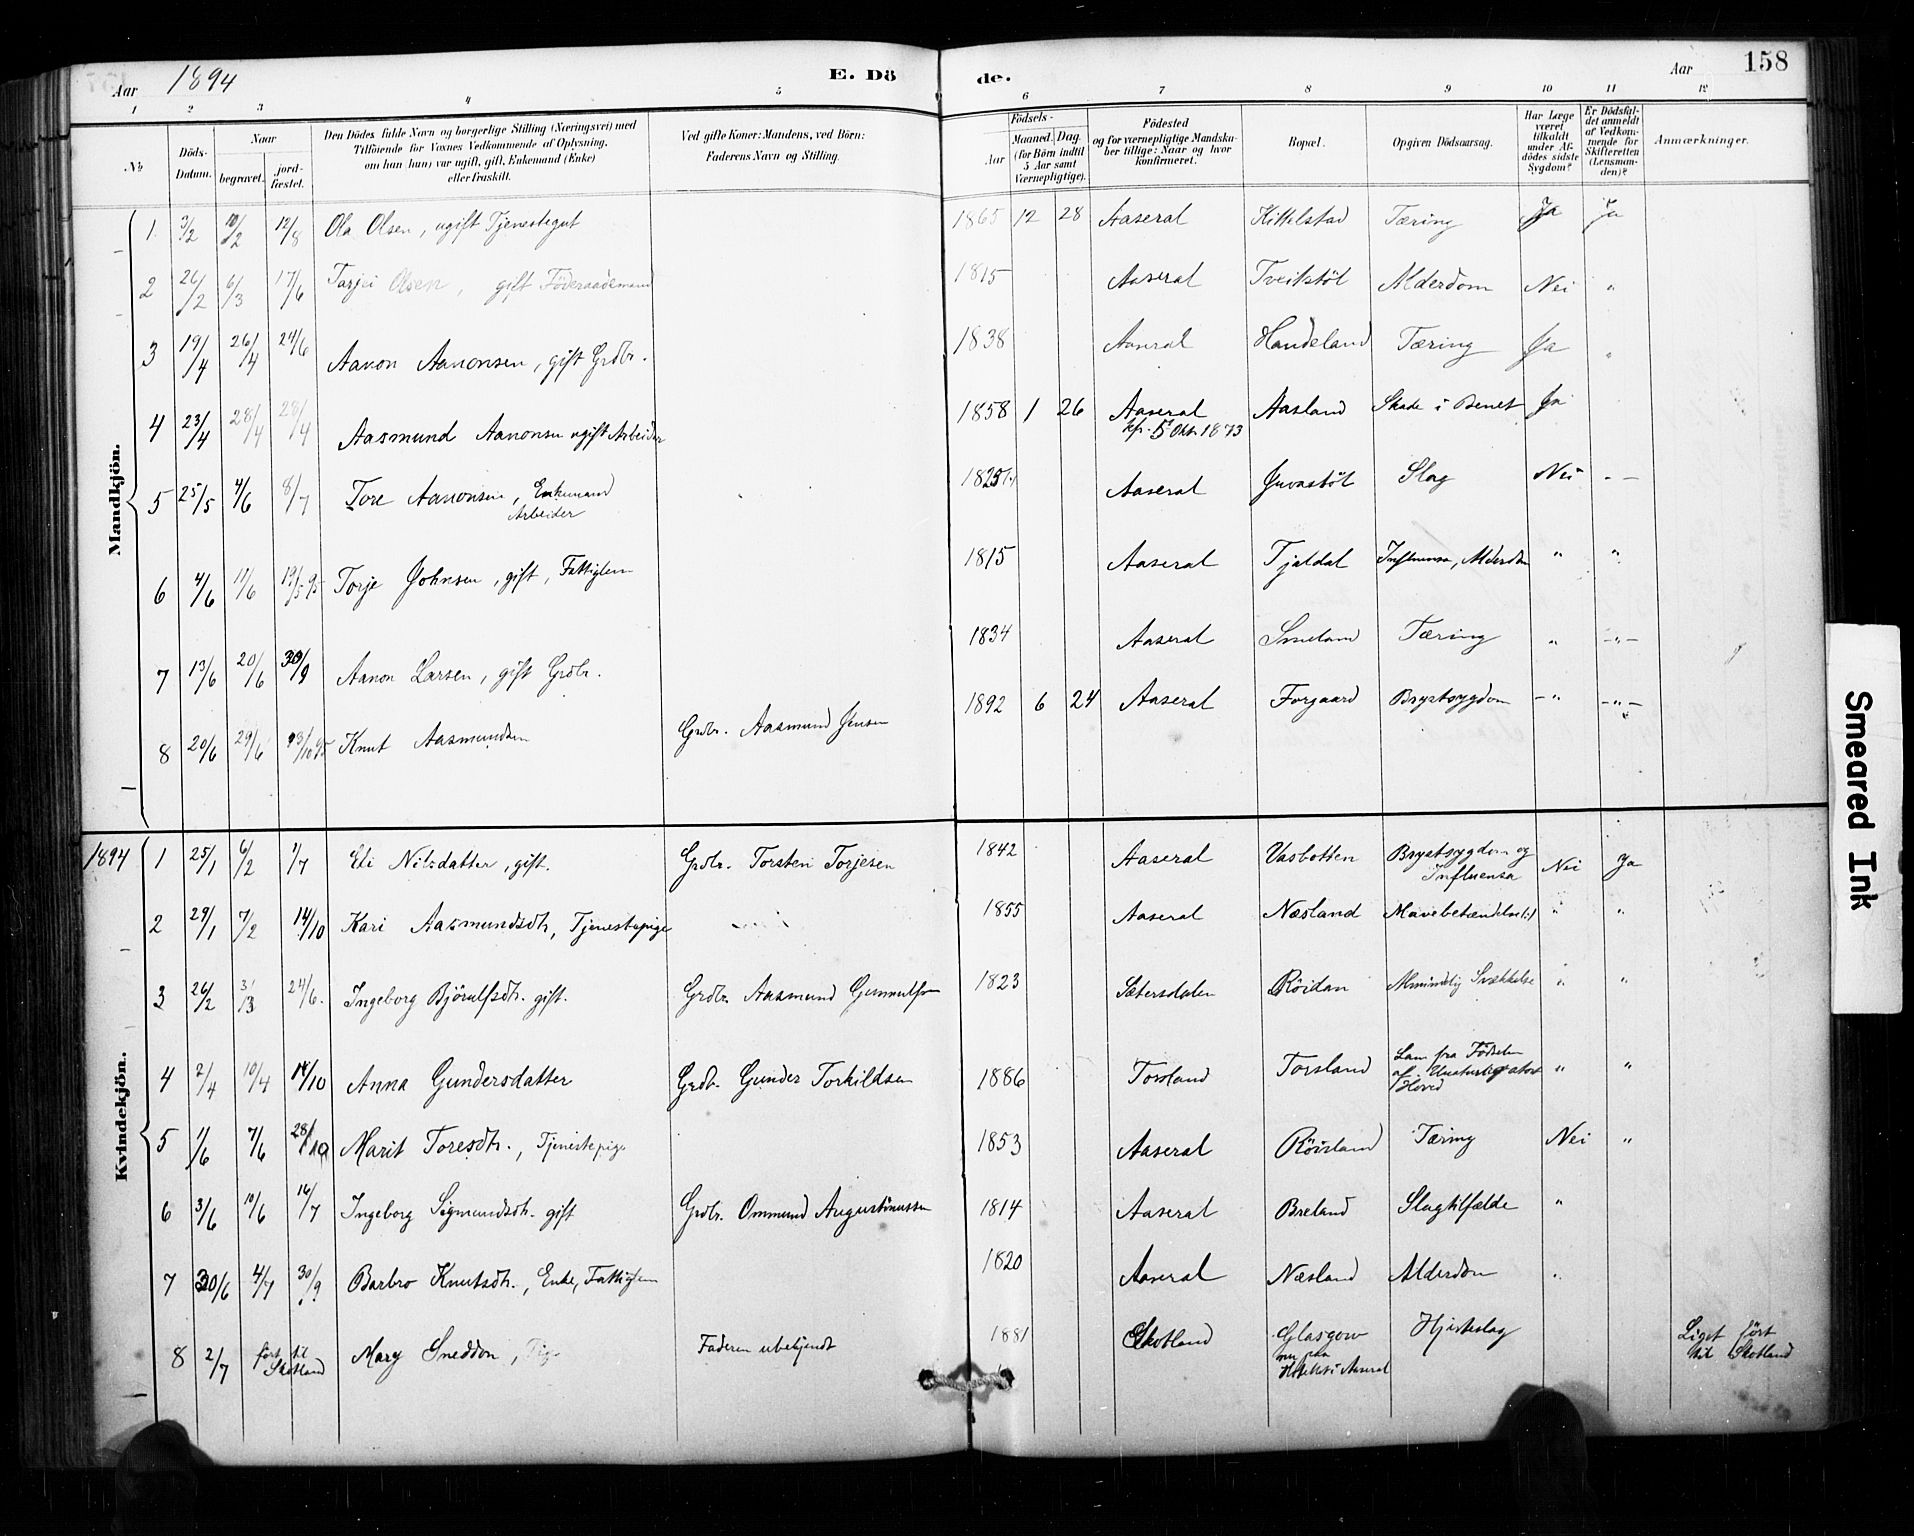 Aar 1894 E. Döde. Aar 158
1 2 3 4 5 6 7 8 9 10 11 12
No
Döds-Datum.
Naar
begravet.
jord-fæstet.
Den Dödes fulde Navn og borgerlige Stilling (Næringsvei) med
Tilföiende för Voxnes Vedkommende af Oplysning,
om han (hun) var ugift, gift, Enkemand (Enke)
eller fraskilt.
Ved gifte Koner: Mandens, ved Börn:
Faderens Navn og Stilling.
Födsels-
Aar
Maaned. Dag.
(for Börn indtil
5 Aar samt
Værnepligtige).
Födested
og for værnepligtige Mandska-
ber tillige: Naar og hvor
konfirmeret.
Bopæl.
Opgiven Dödsaarsag.
Har Læge
været
tilkaldt
under Af-
dödes sidste
Sygdom?
Er Dödsfal-
det anmeldt
af Vedkom-
mende for
Skifteretten
(Lensman-
den)?
Anmærkninger.
Mandkjön.
1. 3/2 10/2 12/8 Ola Olsen, ugift Tjenestegut 1865 12 28 Aaseral Kittelstad Tæring Ja Ja
2 26/2 6/3 17/6 Tarjei Olsen, gift Föderaadsmand 1815 Aaseral Tveitstöl Alderdom Nei "
3 19/4 26/4 24/6 Aanon Aanonsen, gift Grdbr. 1838 Aaseral Handeland Tæring Ja "
4 23/4 28/4 28/4 Aasmund Aanonsen ugift Arbeider 1858 1 26 Aaseral Aasland Skade i Benet Ja
kfr. 5 Okt. 1873
5 25/5 4/6 8/7 Tore Aanonsen, Enkemand 1825 Aaseral Juvastöl Slag Nei - -
Arbeider
6 4/6 11/6 19/5 95 Torje Johnsen, gift, Fattiglem 1815 Aaseral Tjaldal Influensa, Alderdom " "
7 13/6 20/6 30/9 Aanon Larsen, gift Grdbr. 1834 Aaseral Smeland Tæring " -"-
8 20/6 29/6 Knut Aasmundsen Grdbr. Aasmund Jensen 1892 6 24 Aaseral Forgaard Brystsygdom -" -"-
Kvindekjön.
1894 1 25/1 6/2 1/7 Eli Nilsdatter, gift. Grdbr. Torsten Torjesen 1842 Aaseral Vasbotten Brystsygdom og Influensa Nei Ja
2 29/1 7/2 14/10 Kari Aasmundsdtr, Tjenestepige 1855 Aaseral Næsland Mavebetændelse " "
3 26/2 3/3 24/6. Ingeborg Björulfsdtr. gift. Grdbr. Aasmund Gunnulfsen 1823 Sætersdalen Röidan Almindelig Svækkelse " "
4 2/4 10/4 14/10 Anna Gundersdatter Grdbr. Gunder Torkildsen 1886 Torsland Torsland Lam fra Födselen af. Unaturligt stort Hoved " "
5 1/6 7/6 28/10 Marit Toresdtr., Tjenestepige 1853 Aaseral Röisland Tæring Nei "
6 3/6 10/6 16/7 Ingeborg Sigmundsdtr. gift Grdbr. Ommund Augustinussen 1814 Aaseral Breland Slagtilfælde "
7 30/6 4/7 30/9 Barbro Knutsdtr., Enke, Fattiglem 1820 Aaseral Næsland Alderdom "
8 2/7 fört til Skotland Mary Sneddon, Pige Faderen ubekjendt 1881 Skotland Glasgow nu paa Hotellet i Aaseral Hjerteslag Liget fört til Skotland
Smeared Ink